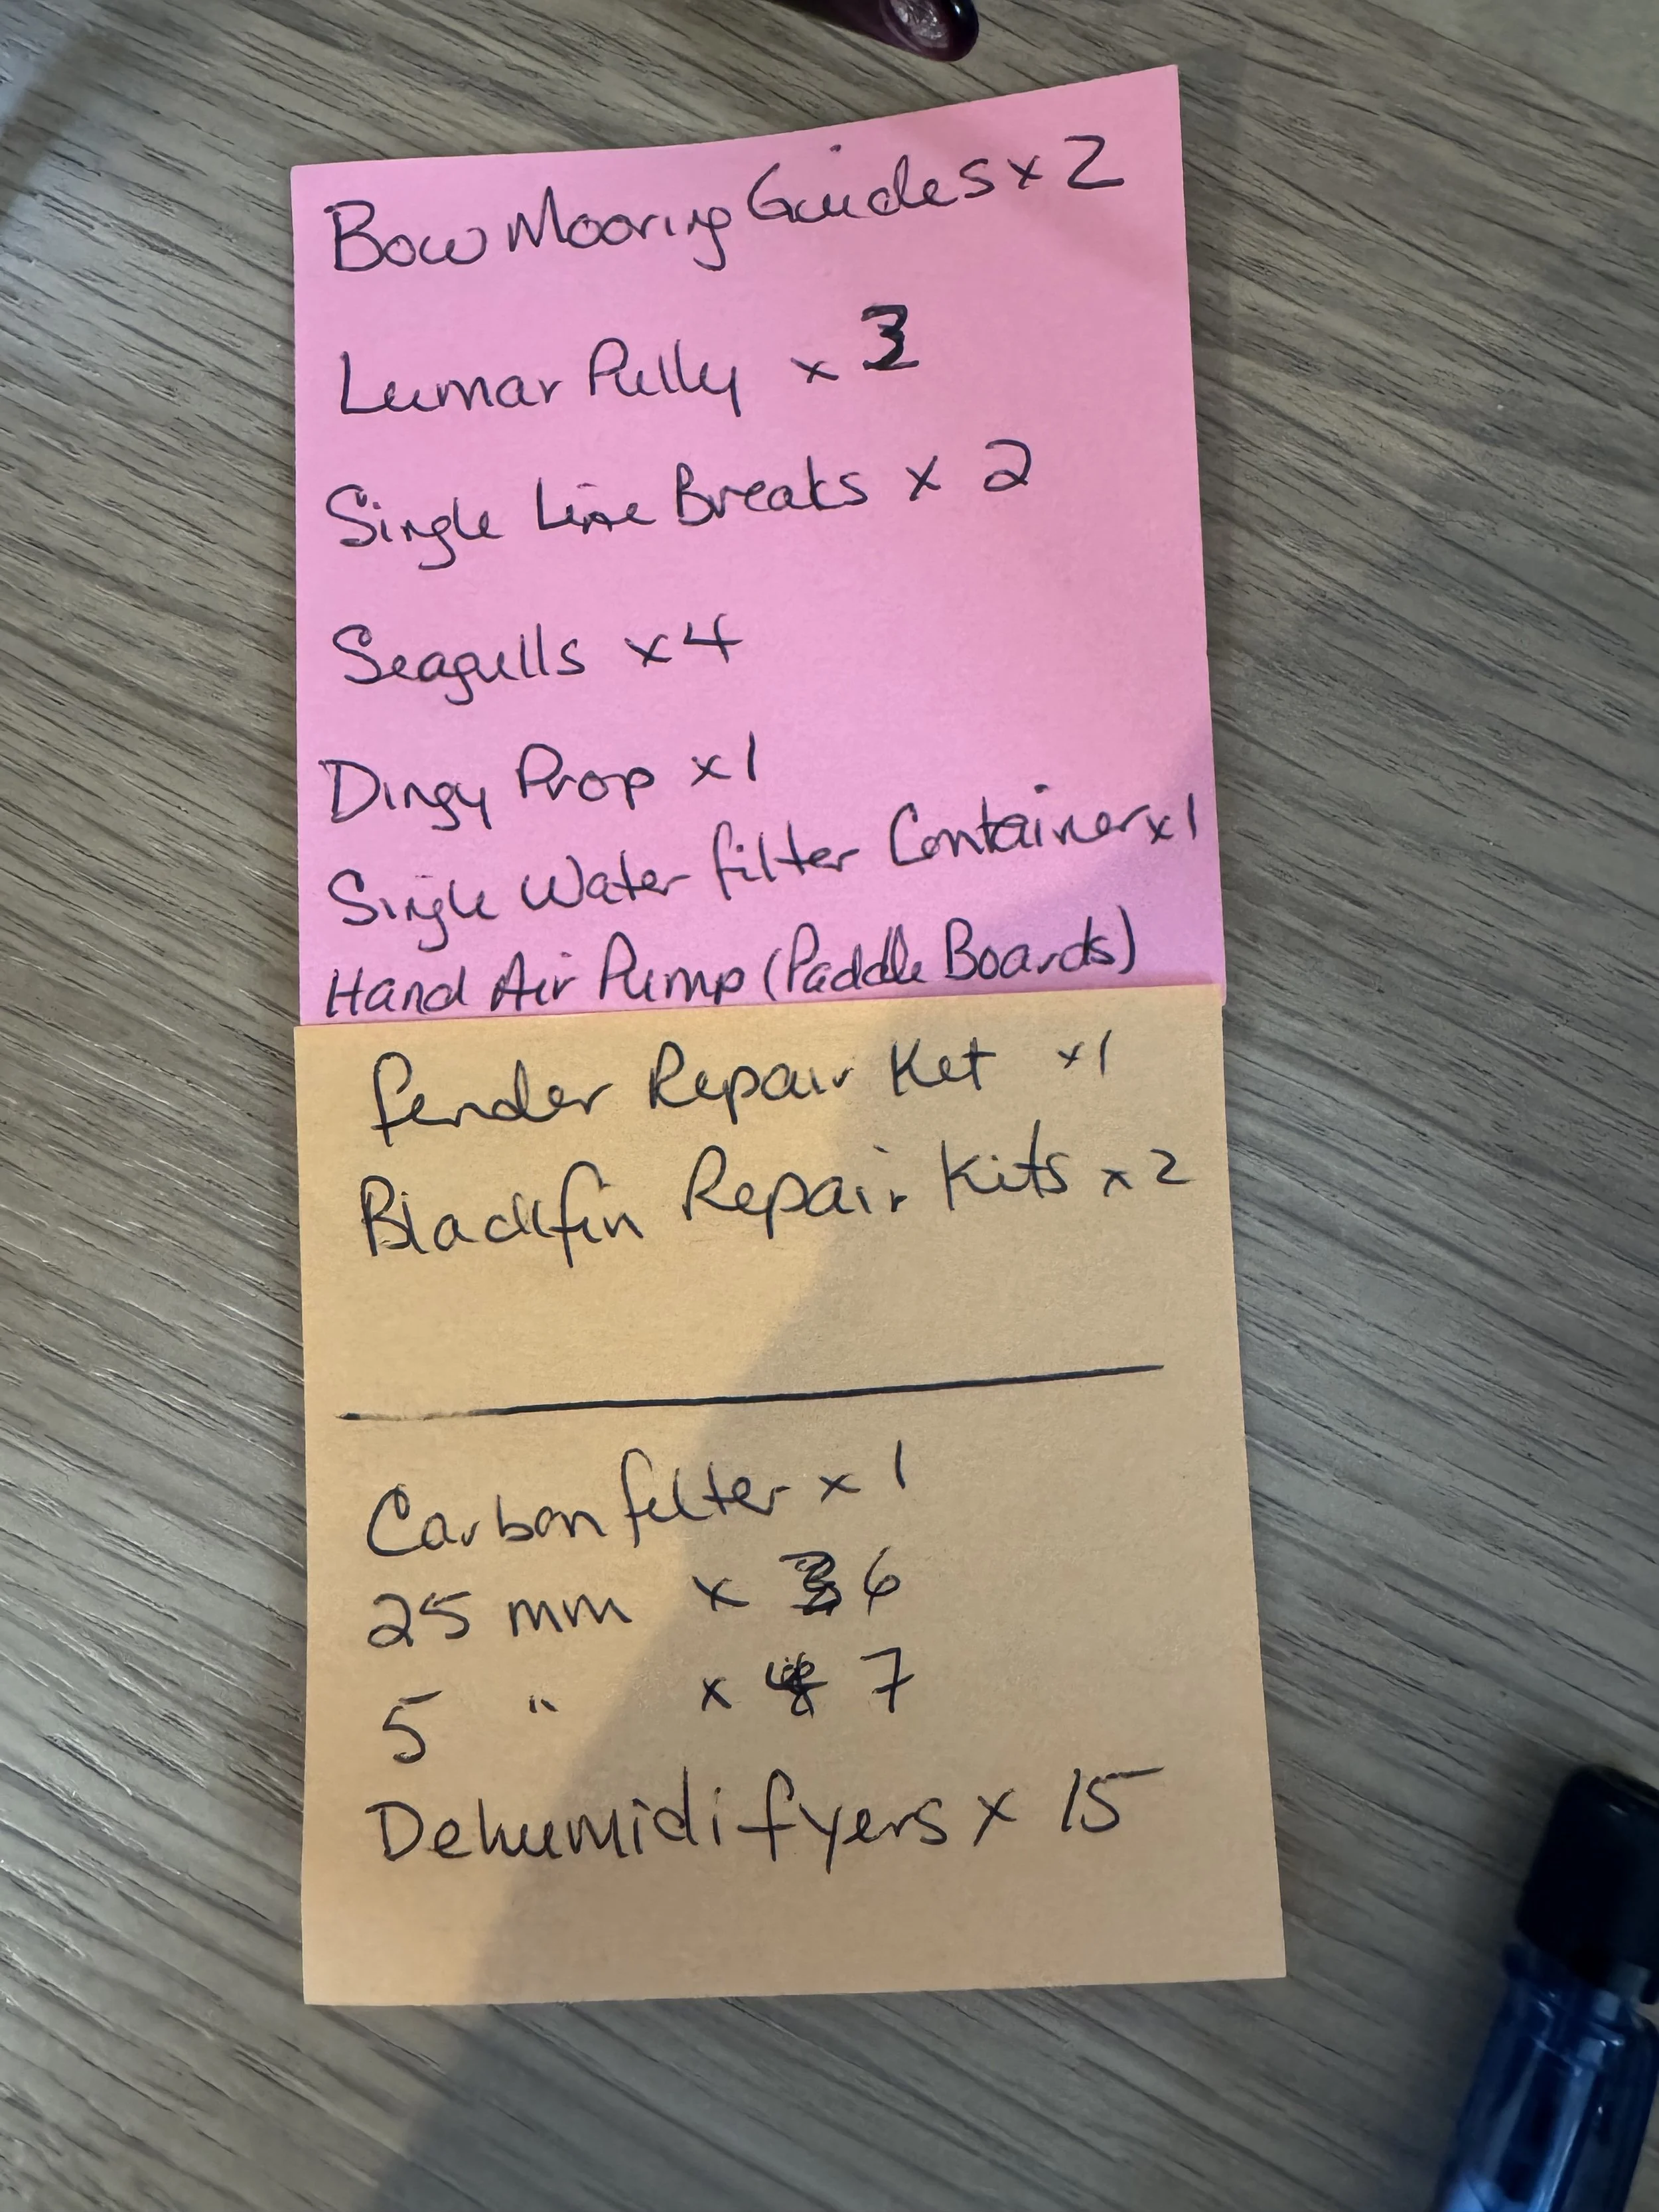 Bow Mooring Guides x 2
Lumar Pully x 3
Single Line Breaks x 2
Seagulls x 4
Dingy Prop x 1
Single Water filter Container x 1
Hand Air Pump (Paddle Boards)
fender Repair Ket x 1
Blackfin Repair Kits x 2
Carbon filter x 1
25 mm x 6
5 " x 7
Dehumidifyers x 15